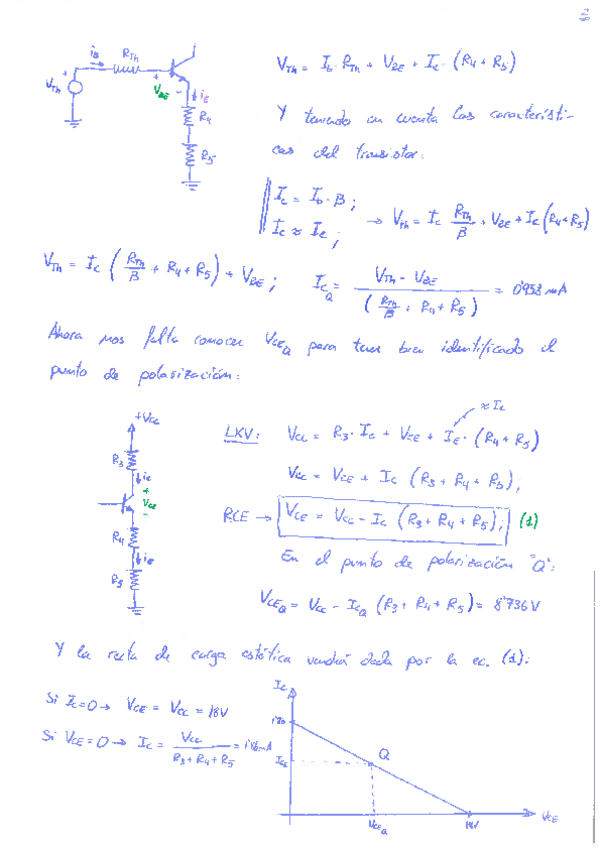 2
V_Th = I_b · R_Th + V_BE + I_c · (R4 + R5)
i_B
R_Th
V_Th
V_BE
i_E
R4
R5
Y teniendo en cuenta las característi-
cas del transistor:
I_c = I_b · β ;
I_c ≈ I_e ;
→ V_Th = I_c R_Th/β + V_BE + I_c (R4 + R5)
V_Th = I_c (R_Th/β + R4 + R5) + V_BE ;
I_CQ = (V_Th - V_BE) / (R_Th/β + R4 + R5) = 0'938 mA
Ahora nos falta conocer V_CEQ para tener bien identificado el
punto de polarización:
+Vcc
R3
i_c
+
V_CE
-
R4
i_E
R5
≈ I_c
LKV: Vcc = R3 · I_c + V_CE + I_E · (R4 + R5)
Vcc = V_CE + I_c (R3 + R4 + R5) ;
RCE → V_CE = Vcc - I_c (R3 + R4 + R5) ; (1)
En el punto de polarización "Q":
V_CEQ = Vcc - I_CQ (R3 + R4 + R5) = 8'736 V
Y la recta de carga estática vendrá dada por la ec. (1):
Si I_c = 0 → V_CE = Vcc = 18V
Si V_CE = 0 → I_c = Vcc / (R3 + R4 + R5) =
I_c
Q
V_CEQ
18V
V_CE